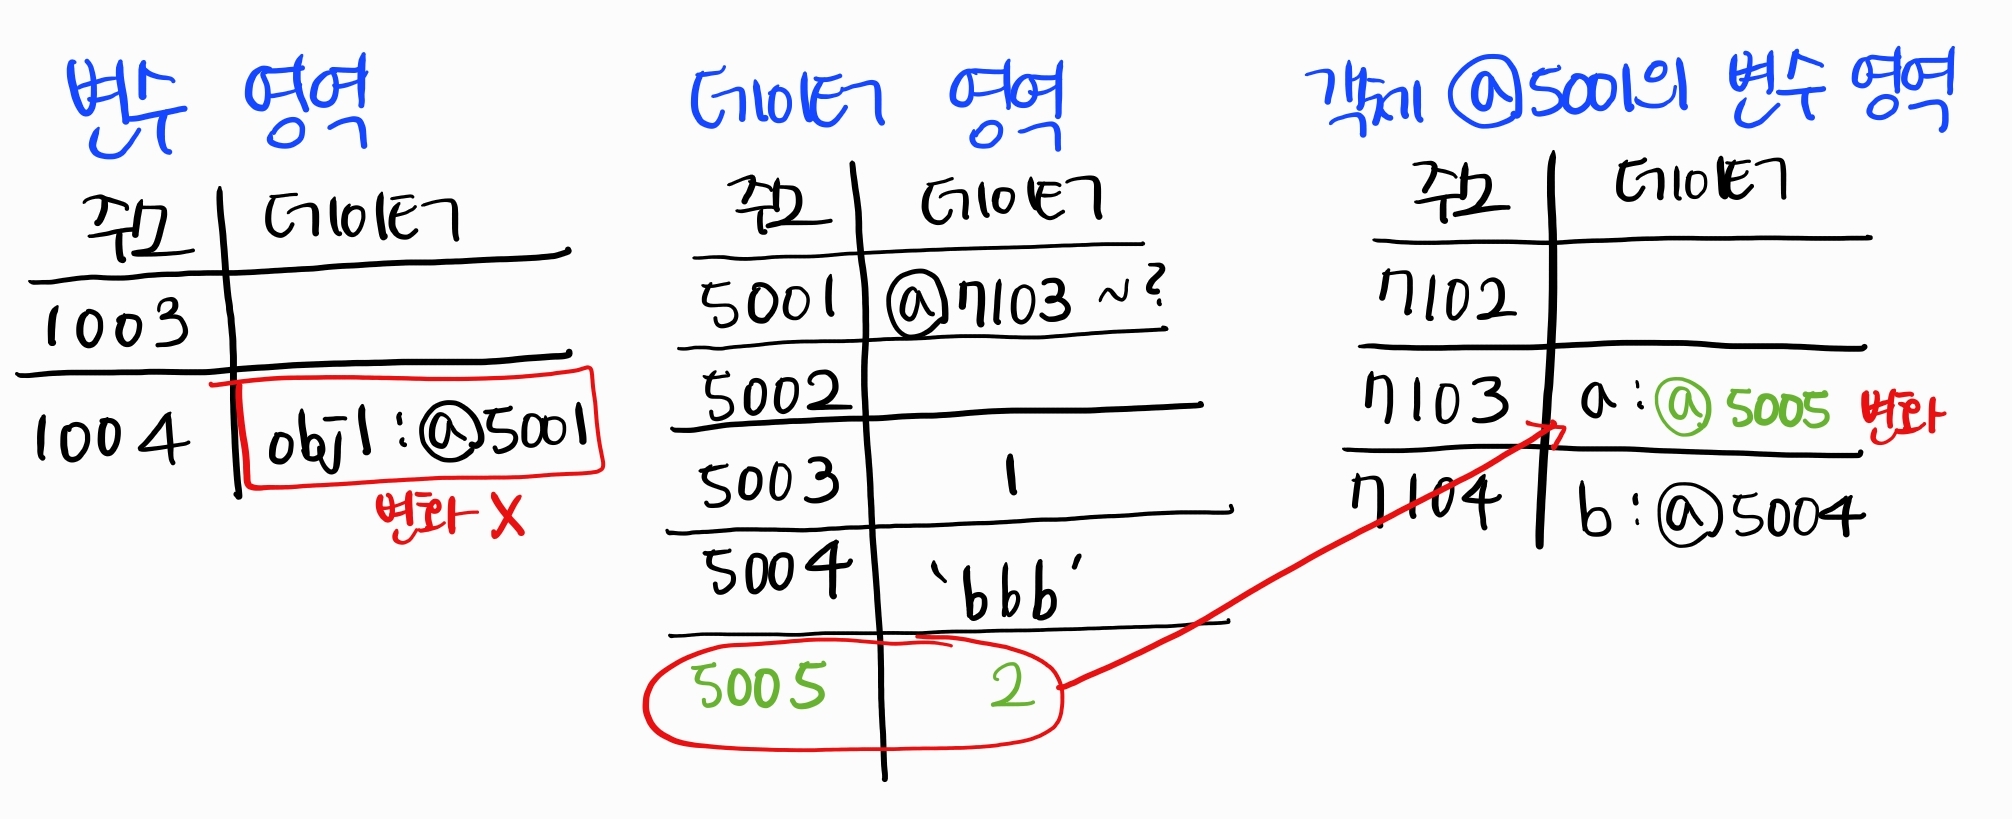 변수 영역
주소 데이터
1003
1004 obj1 : @5001
변화 X
데이터 영역
주소 데이터
5001 @7103 ~ ?
5002
5003 1
5004 'bbb'
5005 2
객체 @5001의 변수 영역
주소 데이터
7102
7103 a : @ 5005 변화
7104 b : @5004